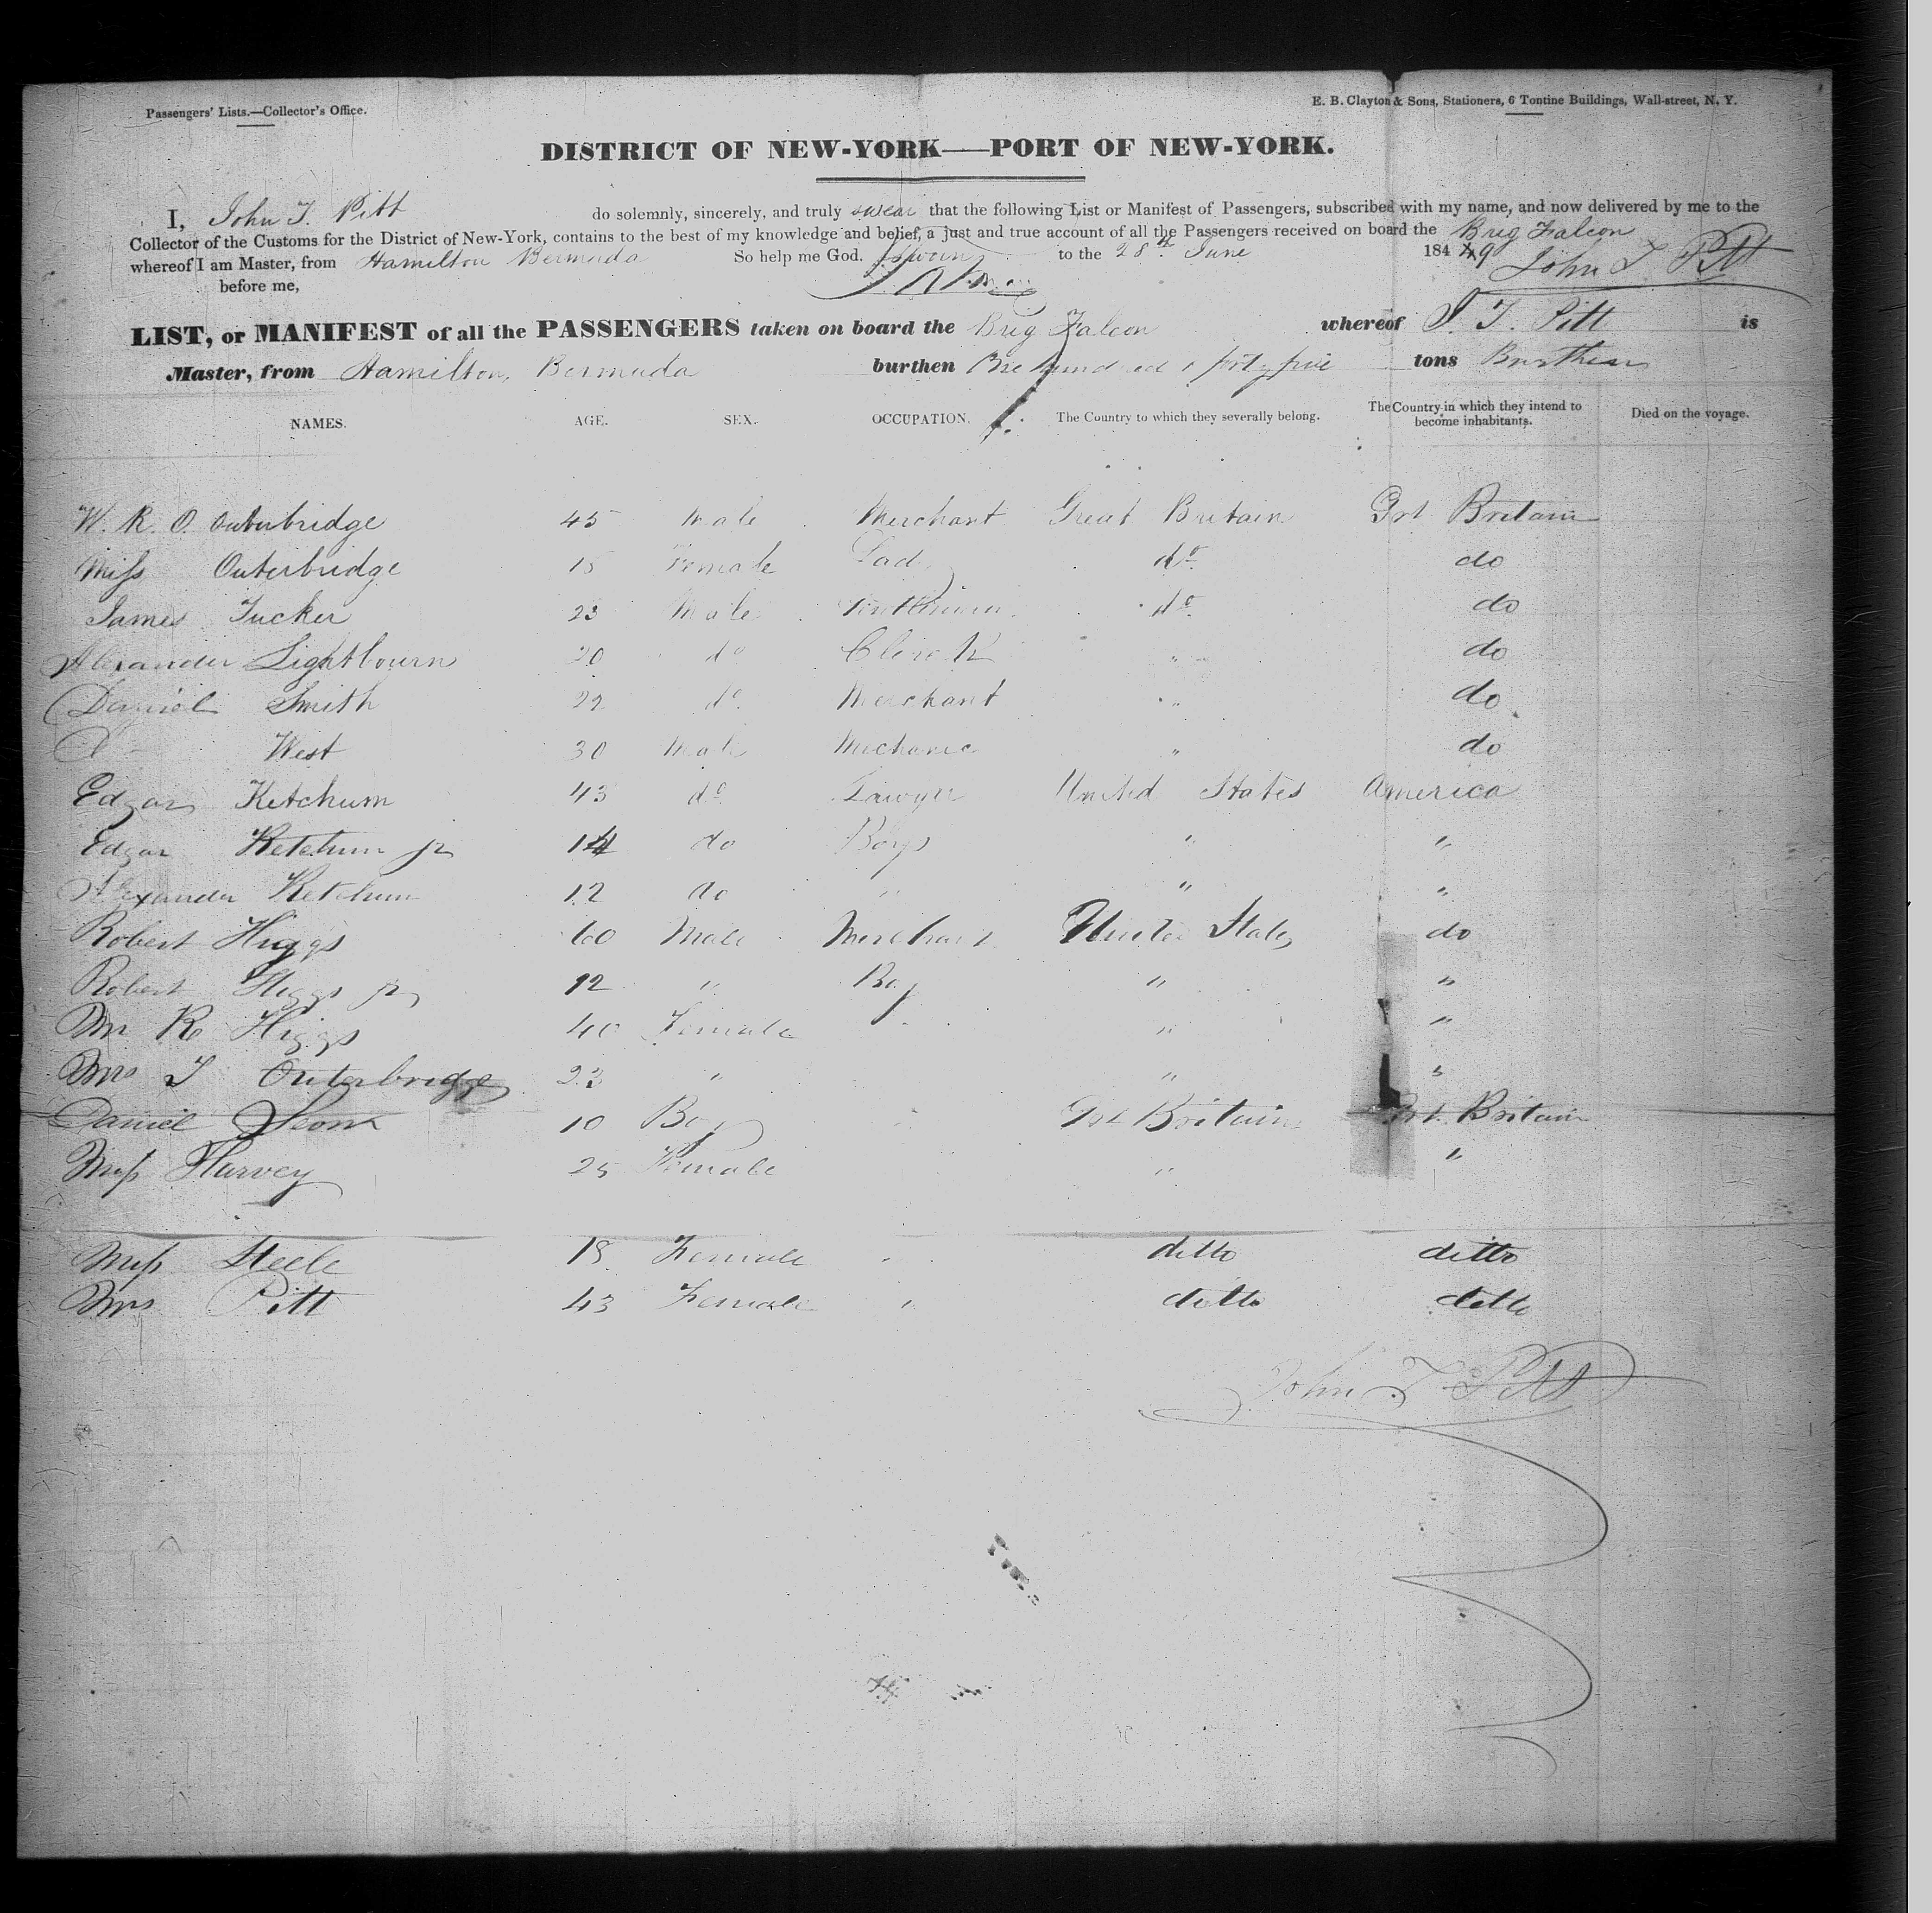 Passengers' Lists.—Collector's Office.
E. B. Clayton & Sons, Stationers, 6 Tontine Buildings, Wall-street, N. Y.
DISTRICT OF NEW-YORK—PORT OF NEW-YORK.
I, John T. Pitt do solemnly, sincerely, and truly swear that the following List or Manifest of Passengers, subscribed with my name, and now delivered by me to the
Collector of the Customs for the District of New-York, contains to the best of my knowledge and belief, a just and true account of all the Passengers received on board the Brig Falcon
whereof I am Master, from Hamilton Bermuda So help me God. Sworn to the 28th June 1849 John T Pitt
before me,
LIST, or MANIFEST of all the PASSENGERS taken on board the Brig Falcon whereof J. T. Pitt is
Master, from Hamilton, Bermuda burthen One hundred & forty five tons Burthen
NAMES. AGE. SEX. OCCUPATION. The Country to which they severally belong. The Country in which they intend to become inhabitants. Died on the voyage.
W. R. O. Outerbridge 45 Male Merchant Great Britain Grt Britain
Miss Outerbridge 15 Female Lady do do
James Tucker 23 Male Gentleman do do
Alexander Lightbourn 20 do Clerk " do
Daniel Smith 22 do Merchant " do
West 30 Male Mechanic " do
Edgar Ketchum 43 do Lawyer United States America
Edgar Ketchum jr 14 do Boys " "
Alexander Ketchum 12 do " " "
Robert Higgs 60 Male Merchant United States do
Robert Higgs jr 12 " Boy " "
Mr R Higgs 40 Female " "
Mrs T Outerbridge 23 " " "
Daniel 10 Boy Grt Britain Grt. Britain
Miss Harvey 25 Female " "
Miss Steele 18 Female " ditto ditto
Mrs Pitt 43 Female " ditto ditto
John T Pitt